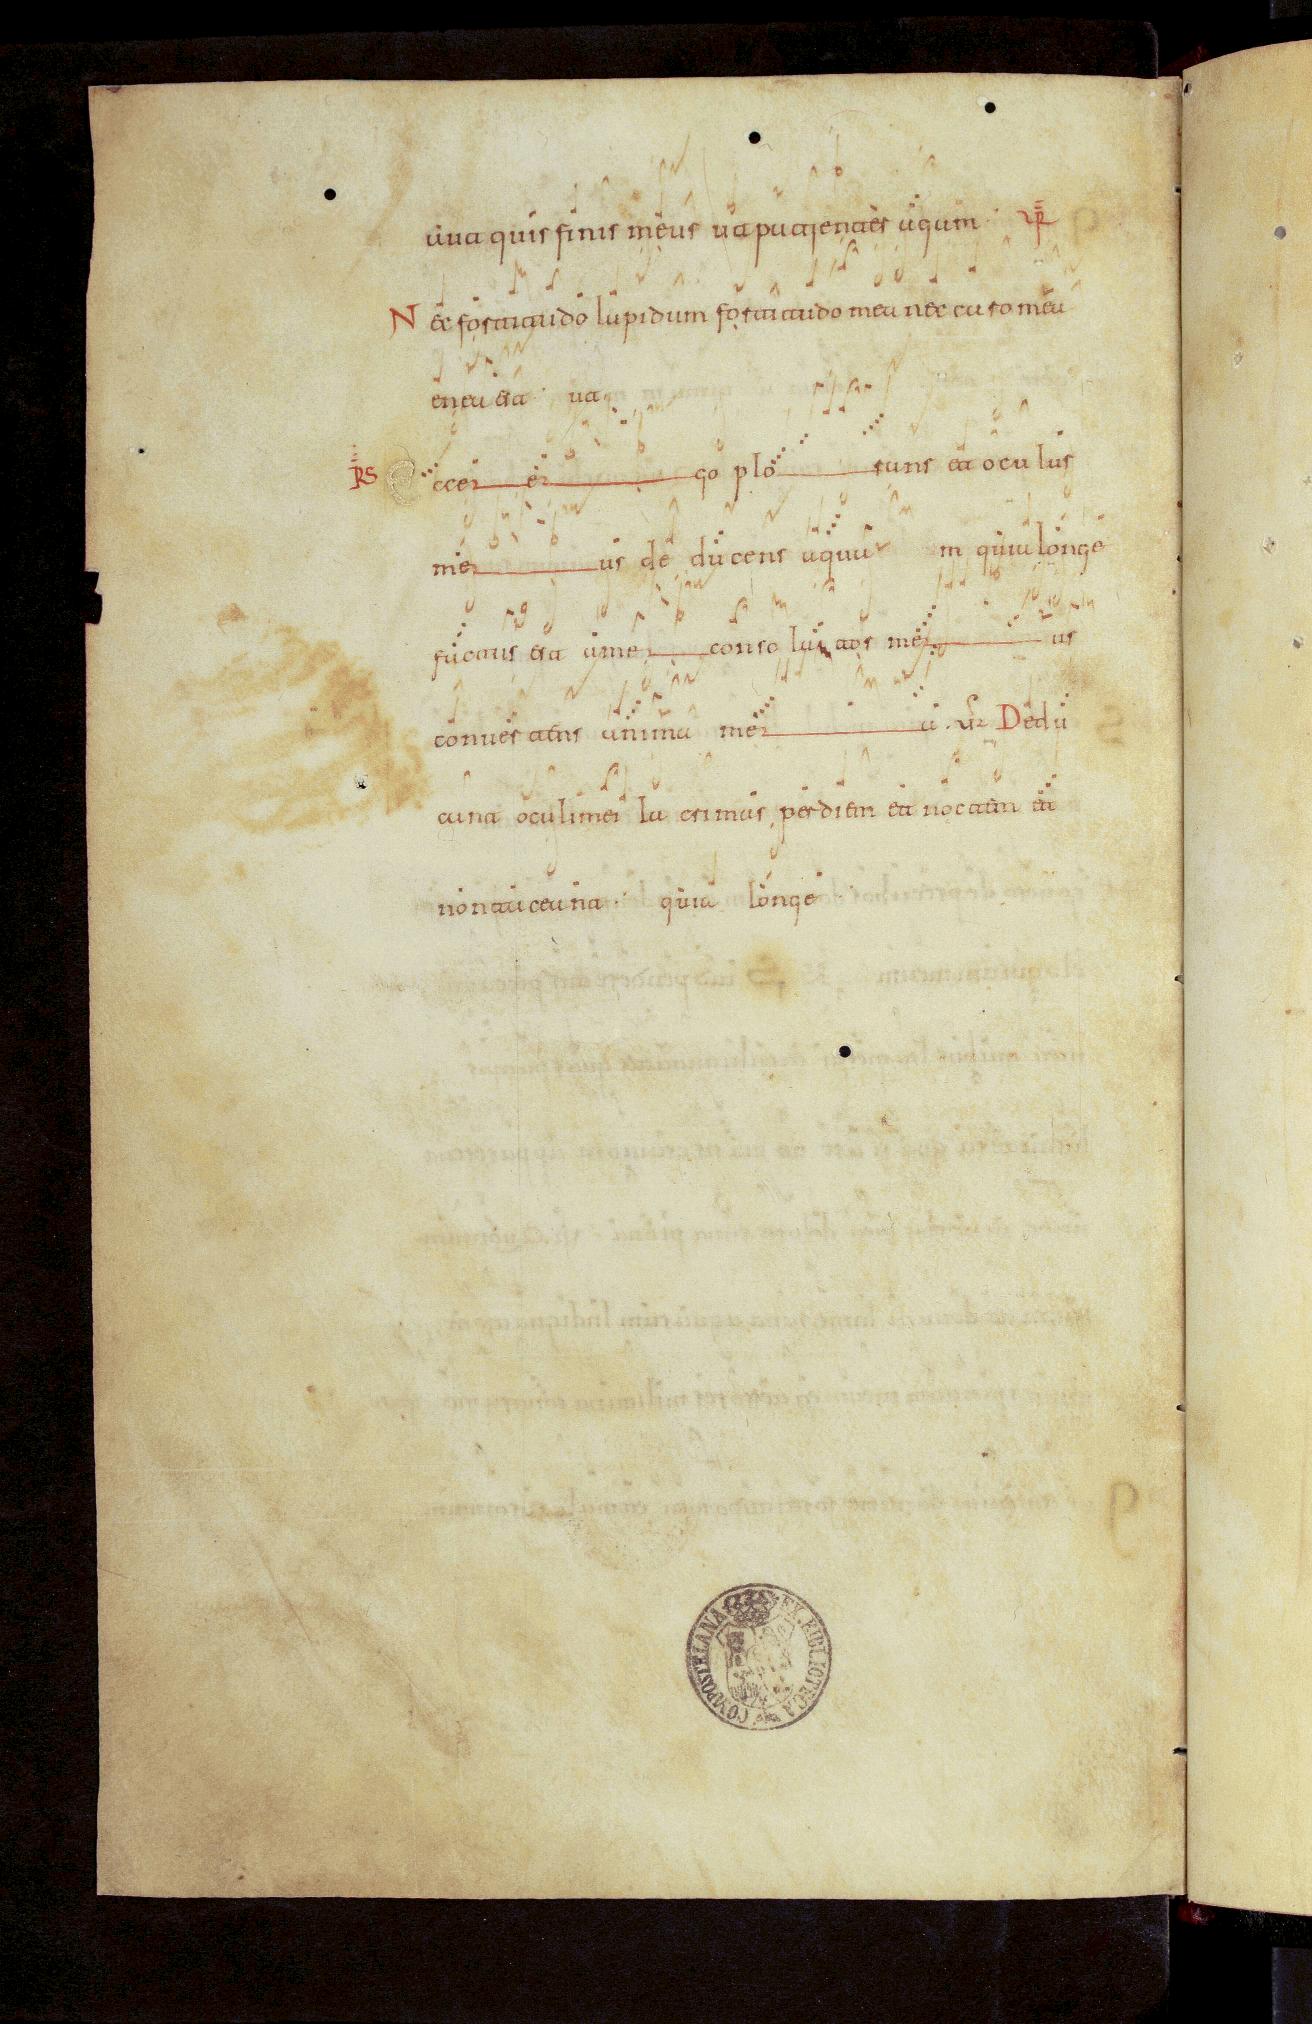 aut quis finis meus ut patienter agam VR
Nec fortitudo lapidum fortitudo mea nec caro mea
enea est ut
RS Ecce e go plo rans et oculus
me us de ducens aqua m quia longe
factus est a me conso la tor me us
convertens anima me a VR Dedu
cant oculi mei la crimas per diem et noctem et
non taceant quia longe
EX BIBLIOTECA COMPOSTELANA